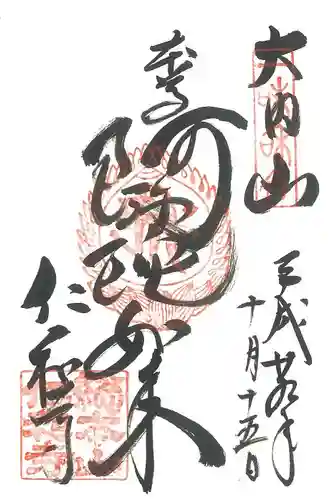 大内山
平成廿五年
十月十五日
奉拝
阿弥陀如来
仁和寺